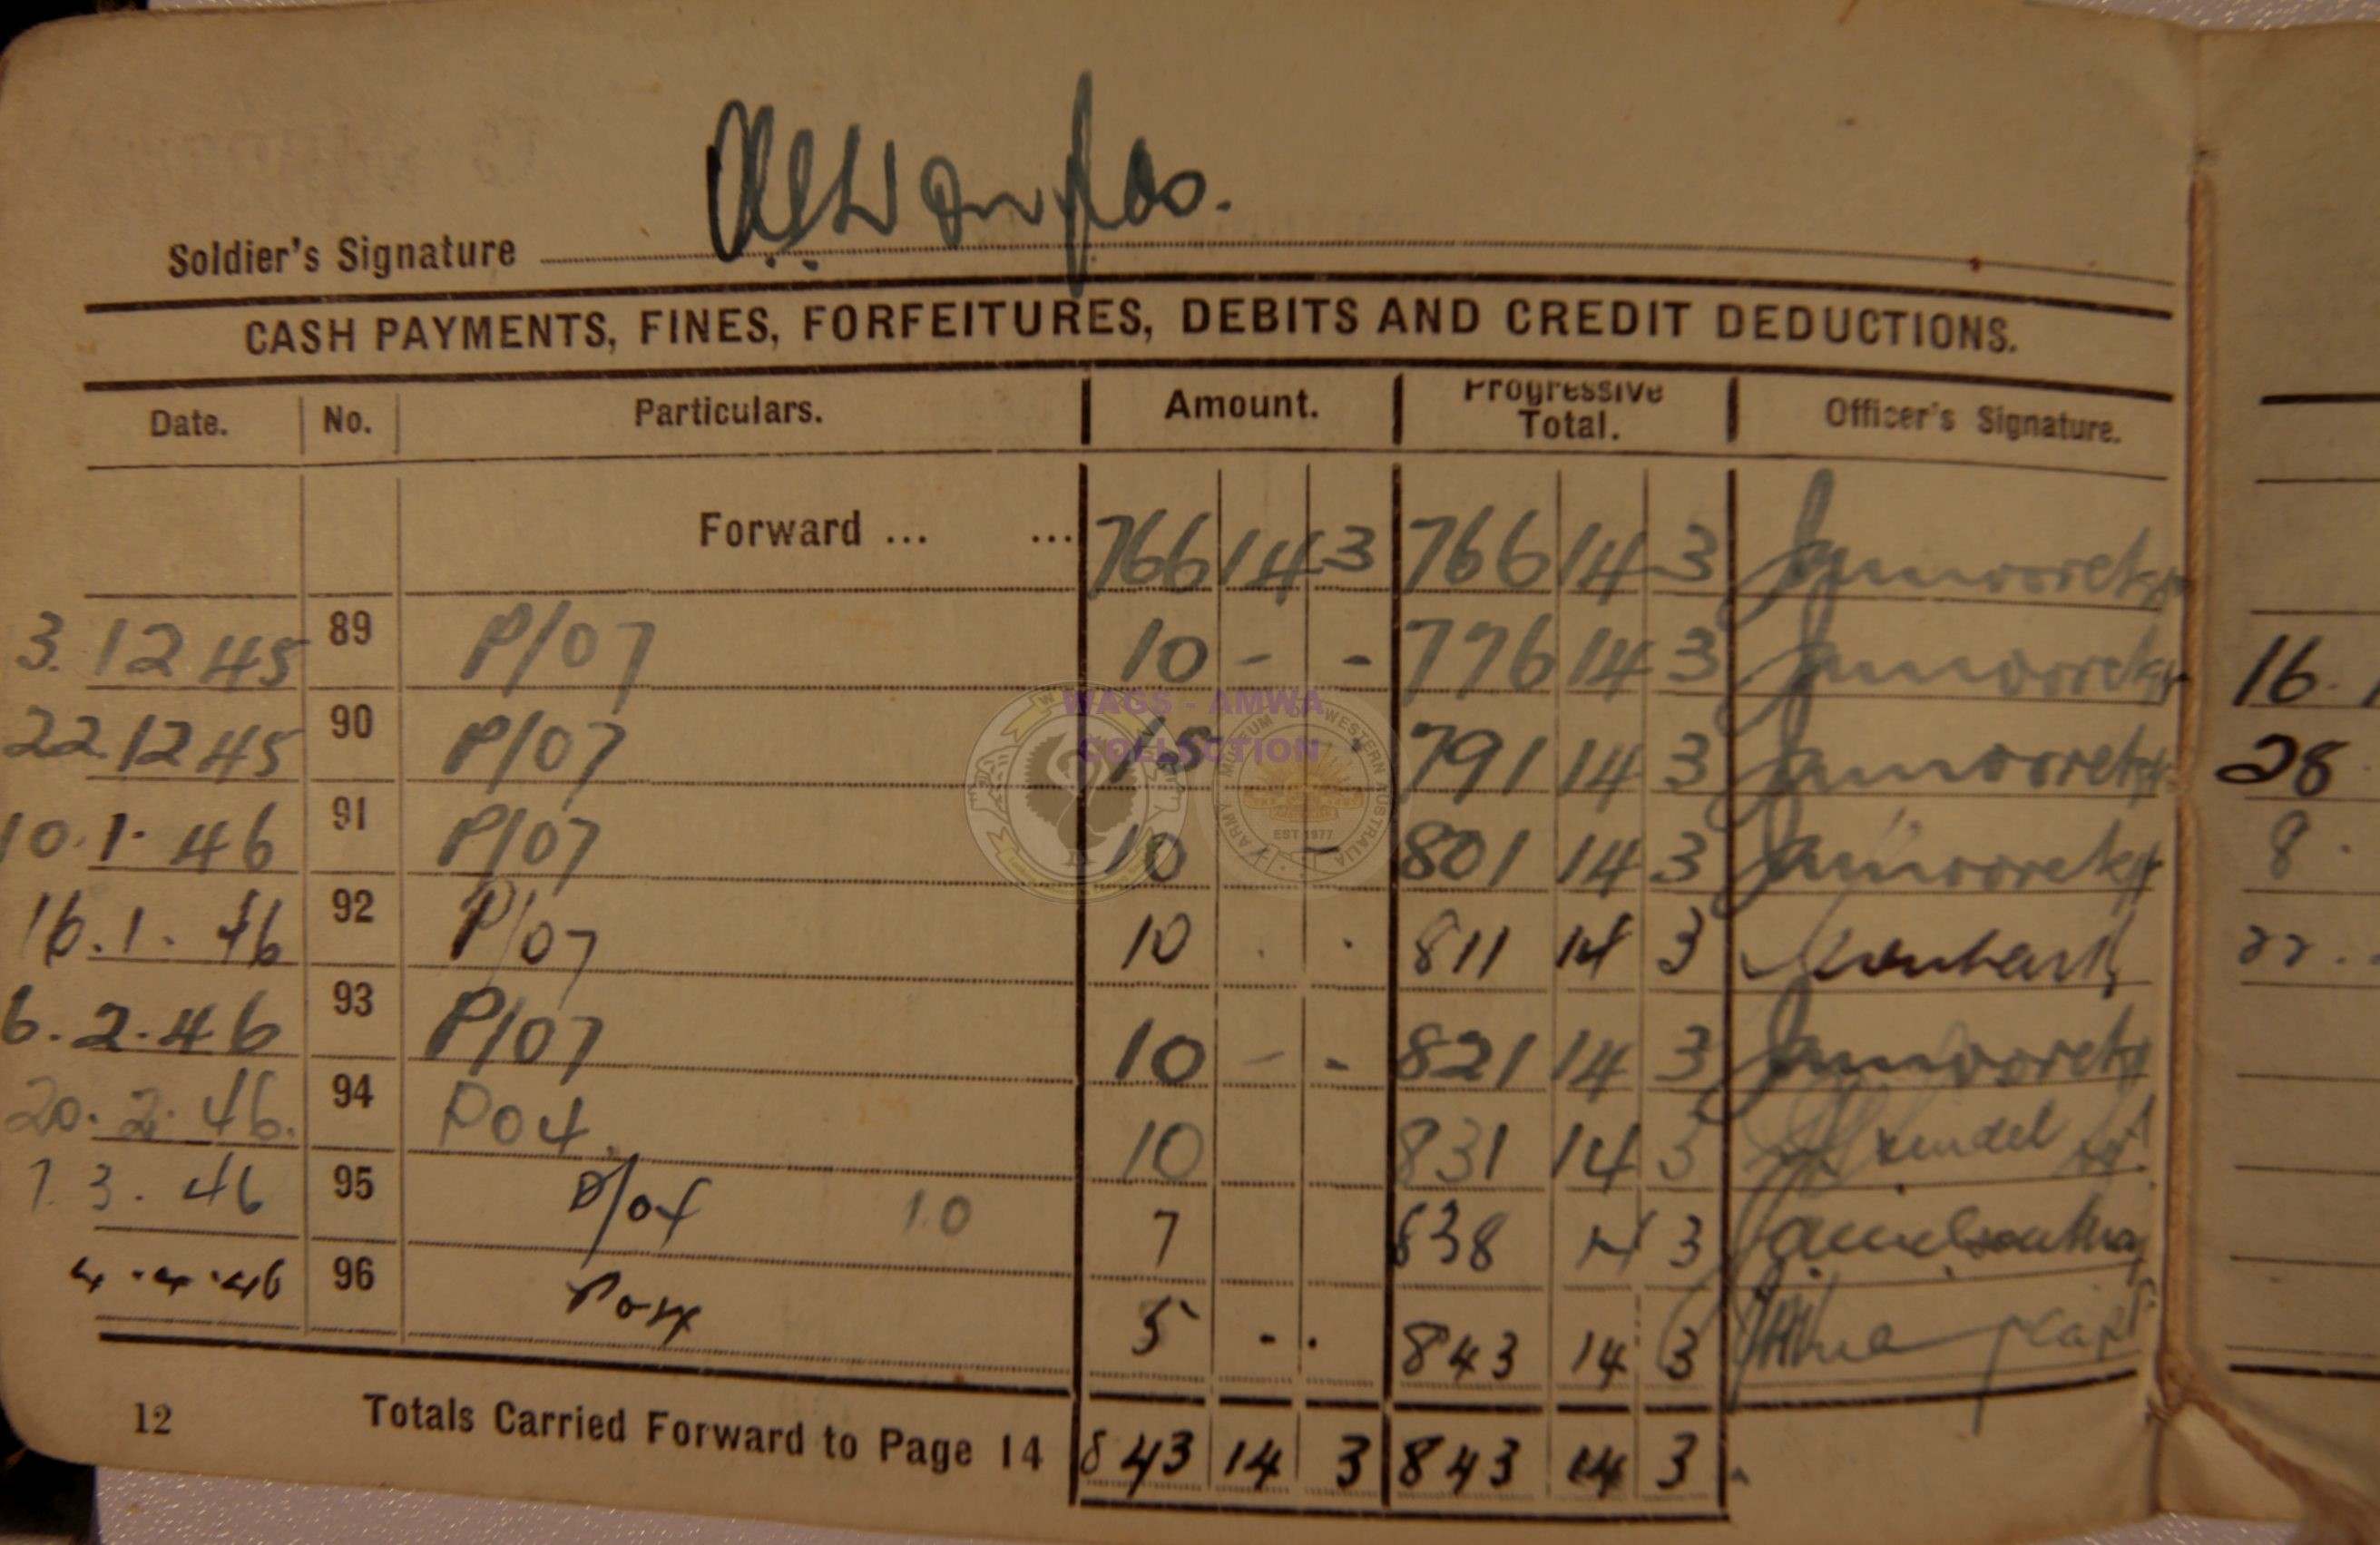 Soldier's Signature
CASH PAYMENTS, FINES, FORFEITURES, DEBITS AND CREDIT DEDUCTIONS.
Date. No. Particulars. Amount. Progressive Total. Officer's Signature.
Forward ... ... 766 14 3 766 14 3
3. 12 45 89 P/07 10 - - 776 14 3
22 12 45 90 P/07 15 791 14 3
10. 1. 46 91 P/07 10 - - 801 14 3
16. 1. 46 92 P/07 10 . . 811 14 3
6. 2. 46 93 P/07 10 - - 821 14 3
20. 2. 46. 94 10 831 14 3
7. 3. 46 95 10 7 838 14 3
4. 4. 46 96 5 - . 843 14 3
12 Totals Carried Forward to Page 14 843 14 3 843 14 3
16.
28
8.
22.
WAGS - AMWA
COLLECTION
ARMY MUSEUM OF WESTERN AUSTRALIA
EST 1977